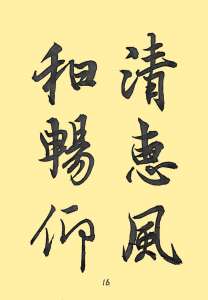 清惠風
和暢仰
16